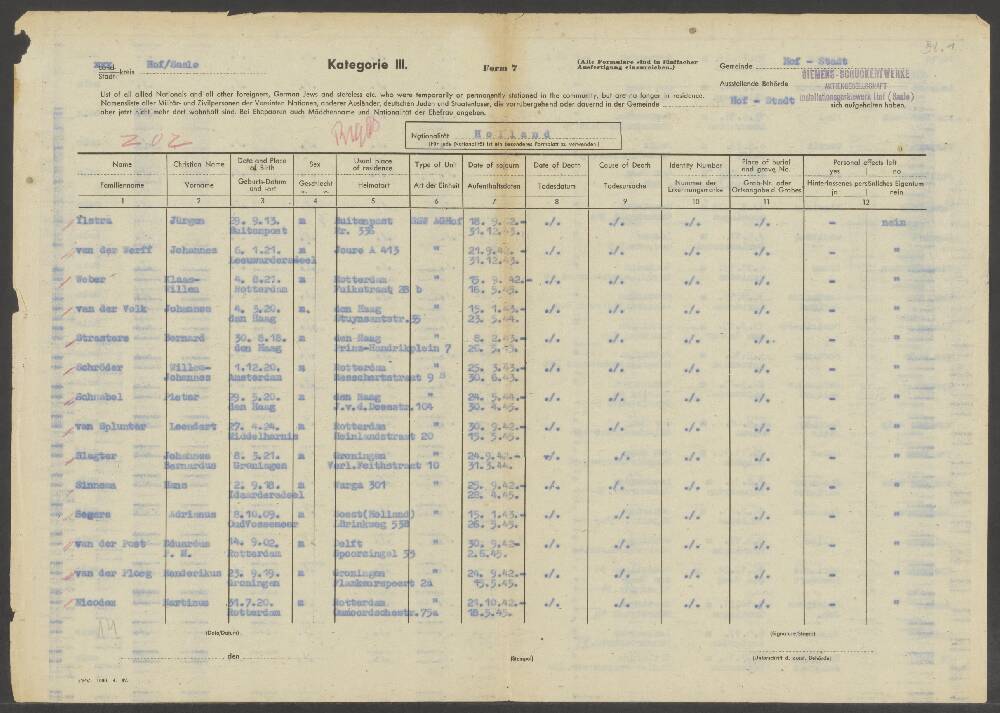 Hof/Saale
Stadt-kreis
Kategorie III.
Form 7
(Alle Formulare sind in fünffacher
Ausfertigung einzureichen.)
Gemeinde Hof - Stadt
SIEMENS-SCHUCKERTWERKE
Ausstellende Behörde AKTIENGESELLSCHAFT
Hof - Stadt Hof (Saale)
List of all allied Nationals and all other foreigners, German Jews and stateless etc. who were temporarily or permanently stationed in the community, but are no longer in residence.
Namensliste aller Militär- und Zivilpersonen der Vereinten Nationen, anderer Ausländer, deutschen Juden und Staatenloser, die vorübergehend oder dauernd in der Gemeinde
sich aufgehalten haben,
aber jetzt nicht mehr dort wohnhaft sind. Bei Ehepaaren auch Mädchenname und Nationalität der Ehefrau angeben.
202
Nationalität Holland
(Für jede Nationalität ist ein besonderes Formblatt zu verwenden)
Name Christian Name Date and Place of Birth Sex Usual place of residence Type of Unit Date of sojourn Date of Death Cause of Death Identity Number Place of burial and grave No. Personal effects left
yes no
Familienname Vorname Geburts-Datum und -ort Geschlecht Heimatort Art der Einheit Aufenthaltsdaten Todesdatum Todesursache Nummer der Erkennungsmarke Grab-Nr. oder Ortsangabe d. Grabes Hinterlassenes persönliches Eigentum
ja nein
1 2 3 4 5 6 7 8 9 10 11 12
Ylstra Jürgen 29. 9.13. m Buitenpost SSW AGHof ./. ./. ./. ./. - nein
Buitenpost Nr. 336 31.12.43.
van der Werff Johannes 6. 1.21. m Joure A 413 " 21.9. ./. ./. ./. ./. - "
Leeuwarderadeel 31.12.43.
Weber Klaas- 4. 8.21. m Rotterdam " 15. 9. 42.- ./. ./. ./. ./. - "
Willem Rotterdam Falkstraat 28 b 16. 5.45.
van der Valk Johannes 4. 3.20. m. den Haag " 15. 1.43.- ./. ./. ./. ./. - "
den Haag Stuynsantstr.55 23. 5.44.
Strasters Bernard 30. 8.18. m den Haag " 8. 2.43.- ./. ./. ./. ./. - "
den Haag Prins-Hendrikplein 7
Schröder Willem- 1.12.20. m Rotterdam " 25. 3.43.- ./. ./. ./. ./. - "
Johannes Amsterdam 30. 6.43.
Schnabel Pieter 29. 5.20. m den Haag " 24. 5.44.- ./. ./. ./. ./. - "
den Haag J.v.d.Doesstr.104 30. 4.45.
van Splunter Leendert 27. 4.24. m Rotterdam " 30. 9.42.- ./. ./. ./. ./. - "
Middelharnis Heinlandstraat 20 15. 5.45.
Slagter Johannes 8. 3.21. m Groningen " 24.9.42.- ./. ./. ./. ./. - "
Bernardus Groningen Verl.Feithstraat 10 31.3.44.
Sinnema Hans 2. 9.18. m Warga 301 " 25. 9.42.- ./. ./. ./. ./. - "
Idaarderadeel 28. 4.45.
Segers Adrianus 8.10.09. m Soest(Holland) " 15. 1.43.- ./. ./. ./. ./. - "
OudVossemeer LBrinkweg 55B 26. 3.45.
van der Post Eduardus 14. 9.02. m Delft " 30. 9.42- ./. ./. ./. ./. - "
Rotterdam Spoorsingel 55 2.6.45.
van der Ploeg Henderikus 23. 9.19. m Groningen " 24. 9.42.- ./. ./. ./. ./. - "
Groningen 2a 15.5.45.
Nicodem Martinus 31.7.20. m Rotterdam " 21.10.42.- ./. ./. ./. ./. - "
Rotterdam 75a 18.5.45.
14
(Date/Datum) (Signature/Stamp)
den
(Stempel) (Unterschrift d. ausst. Behörde)